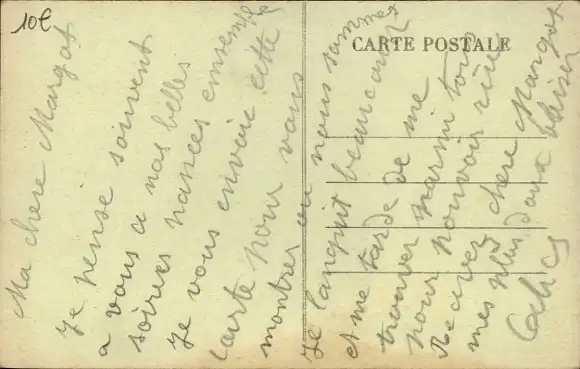 10€
CARTE POSTALE
Ma chere Margot
Je pense souvent
a vous a nos belles
soirées passées ensembles
Je vous envoie cette
carte pour vous
montrer ou nous sommes
Je languit beaucoup
et me tarde de me
trouver parmi tous
pour pouvoir rire
Recevez chere Margot
mes plus doux baiser